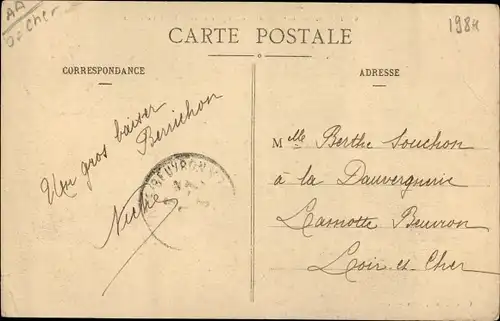 AA
02 Cher
1984
CARTE POSTALE
CORRESPONDANCE
ADRESSE
Un gros baiser
Berrichon
BEUVRON
Mlle Berthe Souchon
à la Dauvergnerie
Lamotte Beuvron
Loir-et-Cher